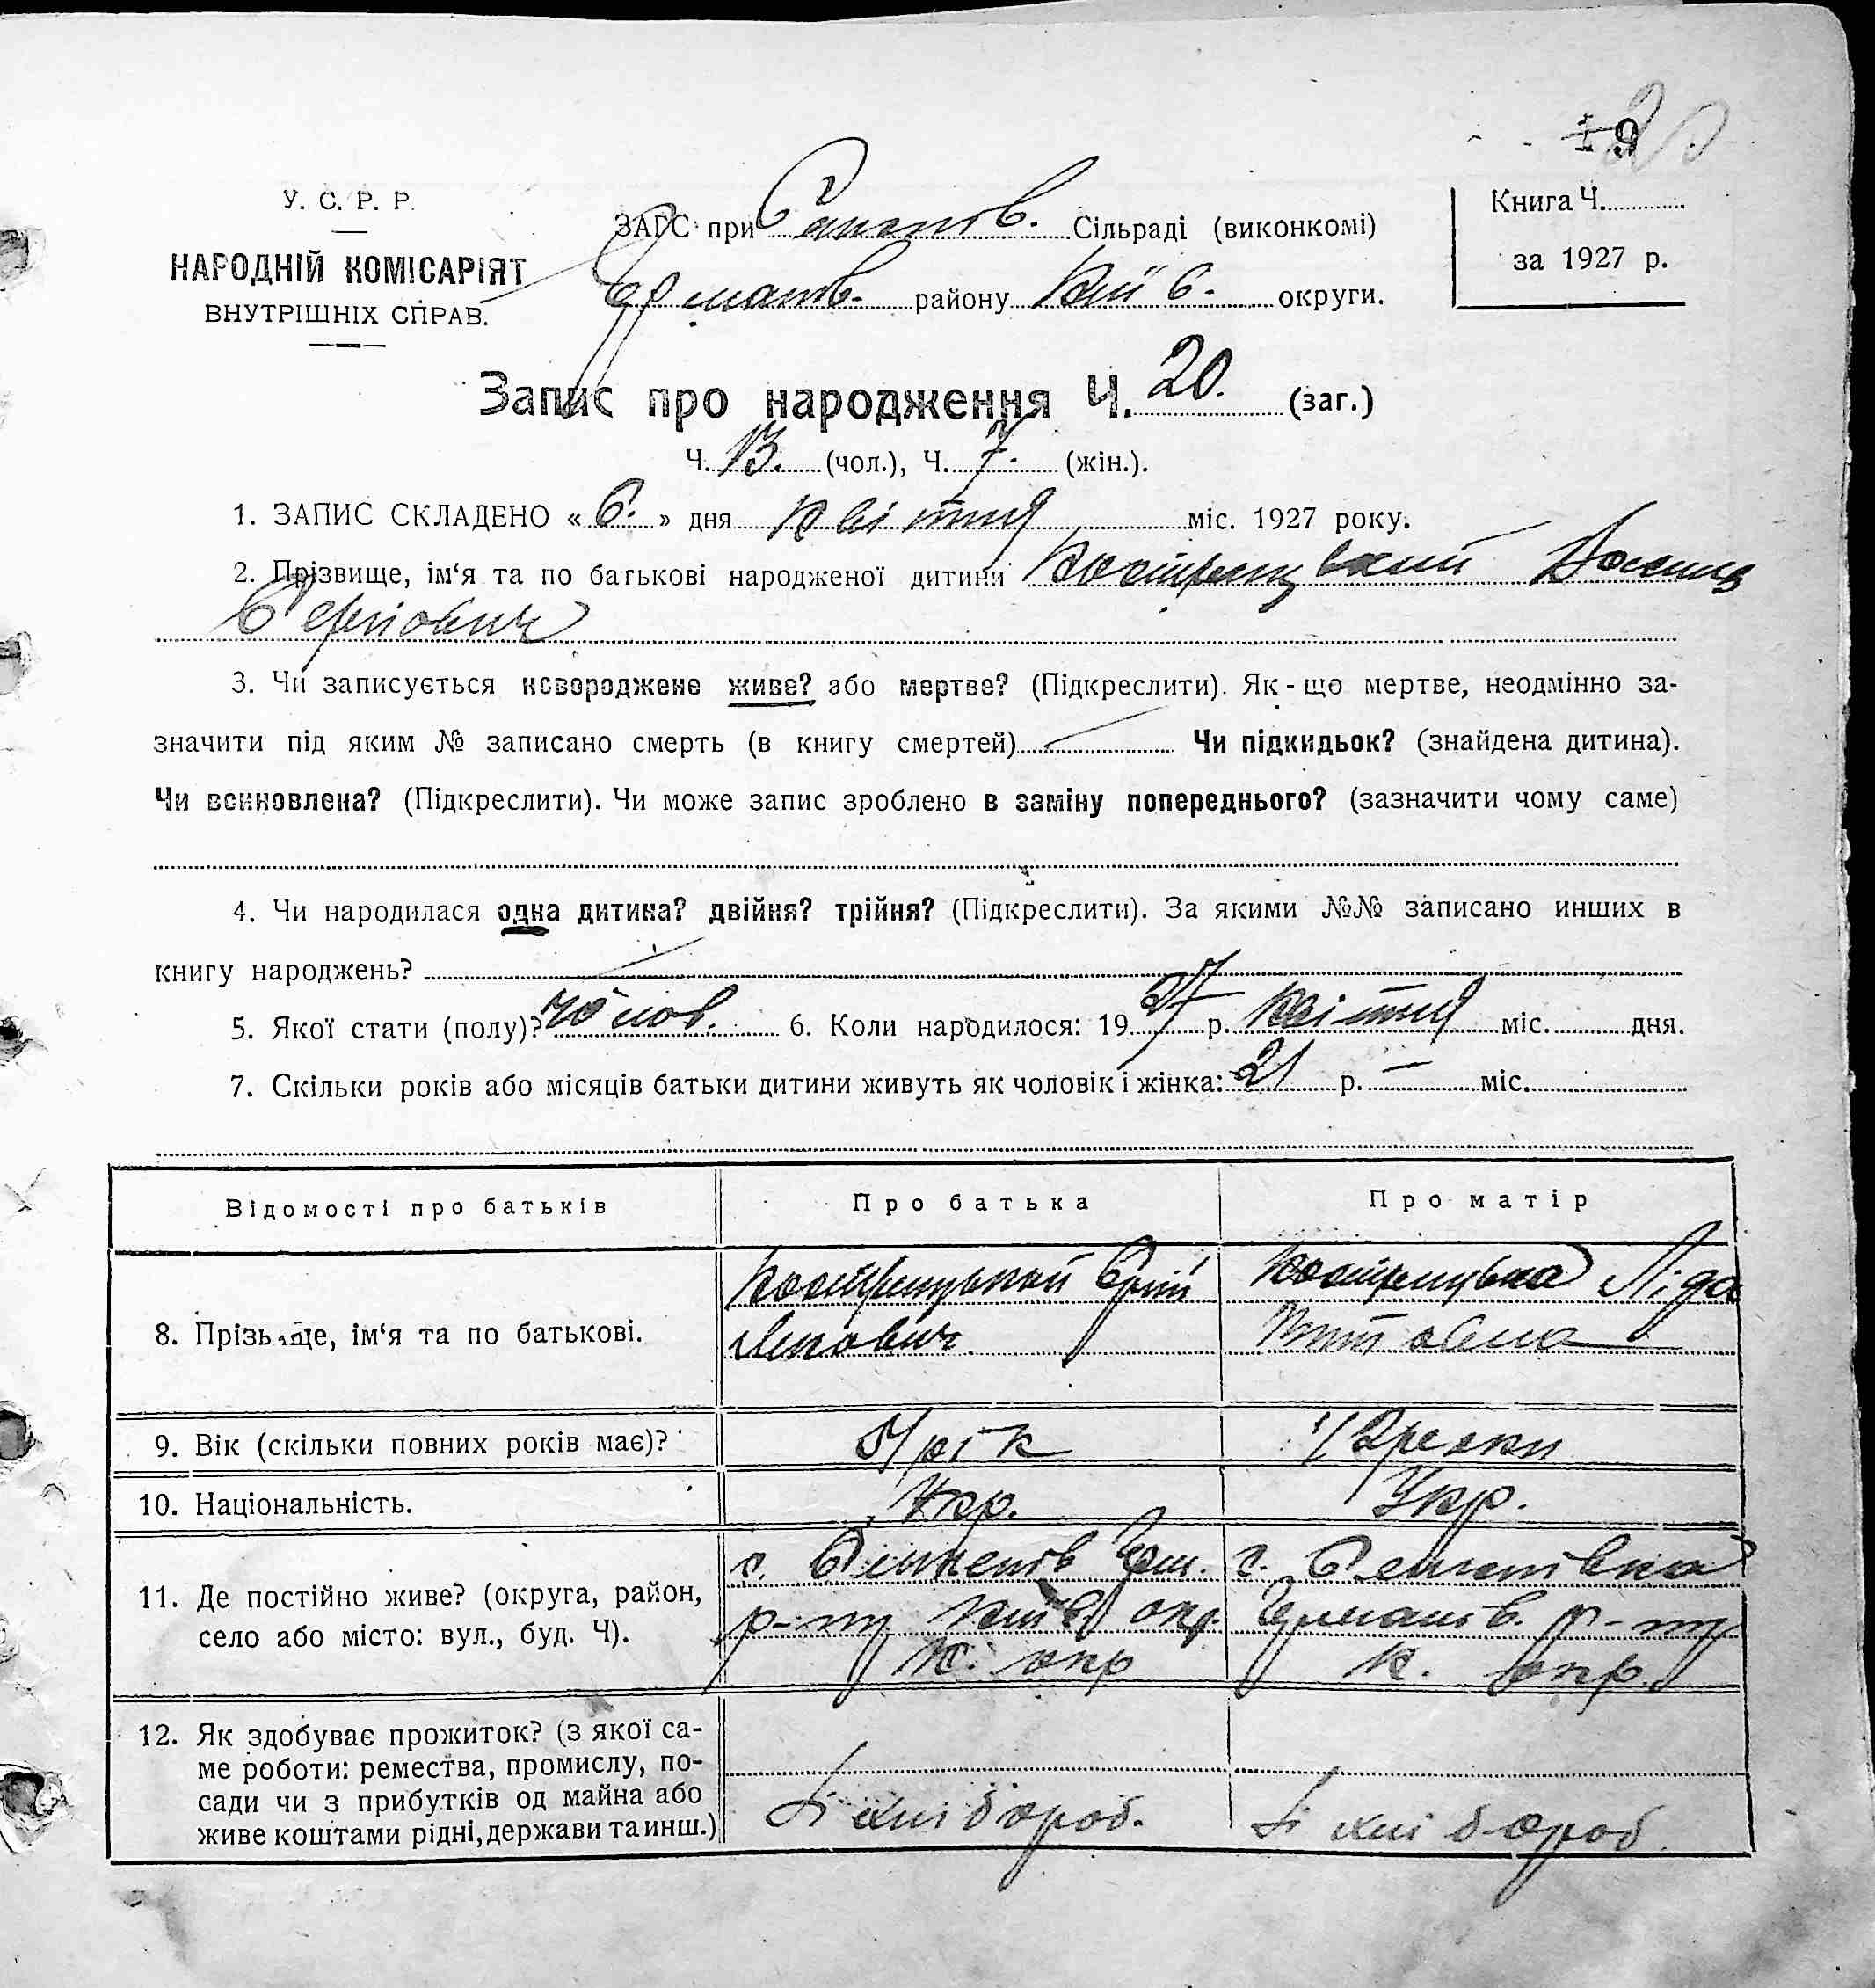 19
20
У. С. Р. Р.
НАРОДНІЙ КОМІСАРІЯТ
ВНУТРІШНІХ СПРАВ.
ЗАГС при Сільраді (виконкомі)
району Київ. округи.
Книга Ч.
за 1927 р.
Запис про народження Ч. 20. (заг.)
Ч. 13. (чол.), Ч. 7. (жін.).
1. ЗАПИС СКЛАДЕНО « 6. » дня квітня міс. 1927 року.
2. Прізвище, ім'я та по батькові народженої дитини
Сергіович
3. Чи записується новороджене живе? або мертве? (Підкреслити). Як-що мертве, неодмінно за-
значити під яким № записано смерть (в книгу смертей) Чи підкидьок? (знайдена дитина).
Чи всиновлена? (Підкреслити). Чи може запис зроблено в заміну попереднього? (зазначити чому саме)
4. Чи народилася одна дитина? двійня? трійня? (Підкреслити). За якими №№ записано инших в
книгу народжень?
5. Якої стати (полу)? чолов. 6. Коли народилося: 1927 р. квітня міс. дня.
7. Скільки років або місяців батьки дитини живуть як чоловік і жінка: 21 р. — міс.
Відомості про батьків Про батька Про матір
8. Прізвище, ім'я та по батькові. Кострицький Костицька Ліда
9. Вік (скільки повних років має)? рік
10. Національність. Укр. Укр.
11. Де постійно живе? (округа, район, с. с.
село або місто: вул., буд. Ч). р-ну окр. р-ну
К. окр К. окр.
12. Як здобуває прожиток? (з якої са-
ме роботи: ремества, промислу, по-
сади чи з прибутків од майна або
живе коштами рідні, держави та инш.) хлібороб. хлібороб